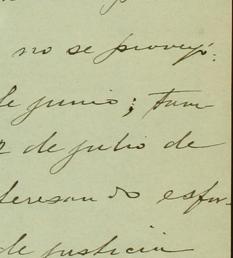 no se proveyó:
de junio; tam-
2 de julio de
teresando esfor-
de justicia